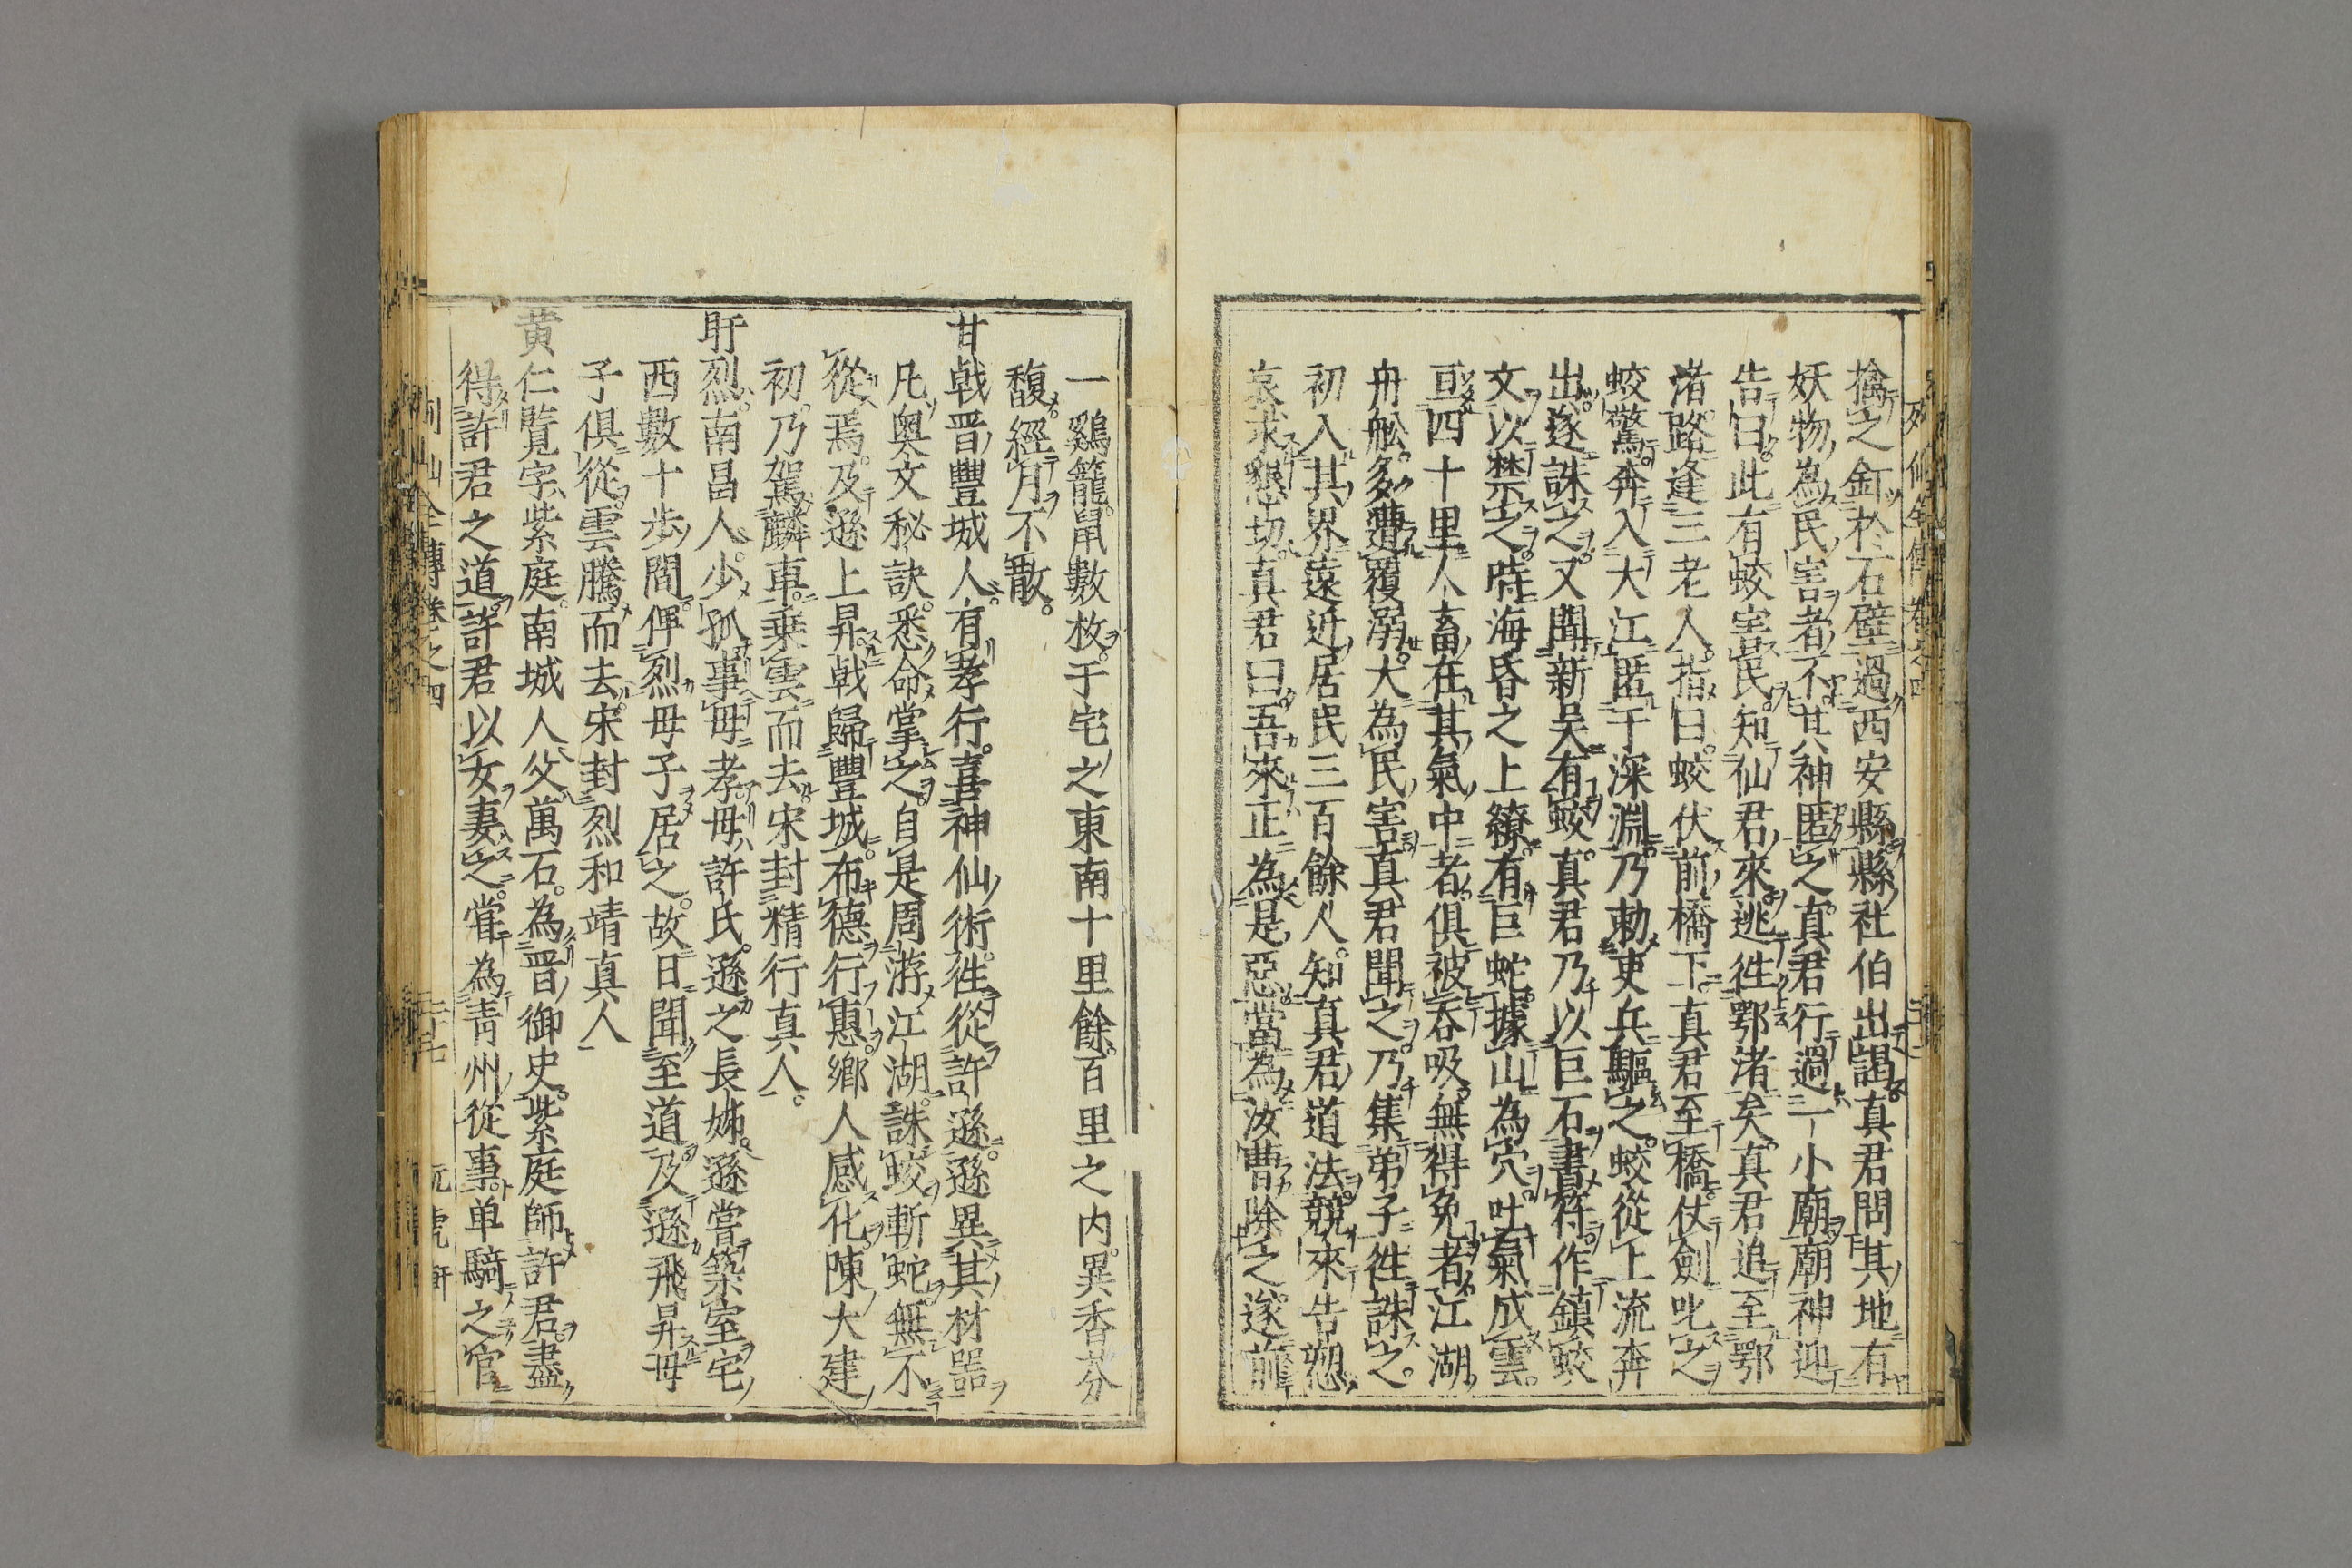 擒之釘於石壁過西安縣縣社伯出謁真君問其地有
妖物為民害者不其神匿之真君行過一小廟廟神迎
告曰此有蛟害民知仙君來逃徃鄂渚矣真君追至鄂
渚路逢三老人指曰蛟伏前橋下真君至橋仗劍叱之
蛟驚奔入大江匿于深淵乃勅吏兵驅之蛟從上流奔
出遂誅之又聞新吴有蛟真君乃以巨石書符作鎮蛟
文以禁之時海昏之上繚有巨蛇據山為穴吐氣成雲
亘四十里人畜在其氣中者俱被吞吸無得免者江湖
舟舩多遭覆溺大為民害真君聞之乃集弟子徃誅之
初入其界遠近居民三百餘人知真君道法競來告愬
哀求懇切真君曰吾來正為是惡當為汝曹除之遂前
一鷄籠鼠數枚于宅之東南十里餘百里之内異香芬
馥經月不散
甘戟晋豐城人有孝行喜神仙術徃從許遜遜異其材噐
凡奥文秘訣悉命掌之自是周游江湖誅蛟斬蛇無不
從焉及遜上昇戟歸豐城布德行惠鄉人感化陳大建
初乃駕麟車乗雲而去宋封精行真人
盱烈南昌人少孤事母孝母許氏遜之長姊遜嘗築室宅
西數十步間俾烈母子居之故日聞至道及遜飛昇母
子俱從雲騰而去宋封烈和靖真人
黄仁覽字紫庭南城人父萬石為晋御史紫庭師許君盡
得許君之道許君以女妻之嘗為青州從事单騎之官
列仙全傳卷之四 二十七 玩虎軒